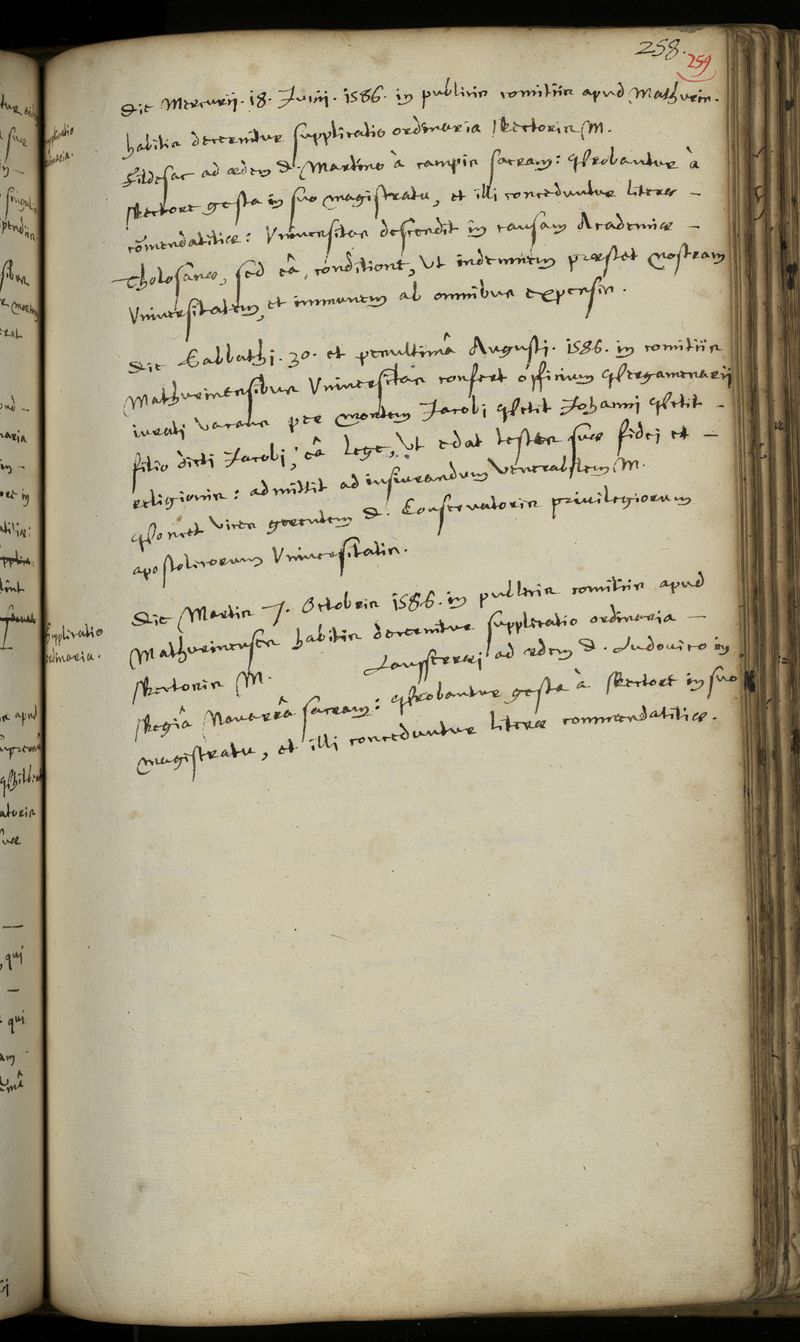 258.
259
Die Mercurij. 18. Junij. 1586. in publicis comitiis apud Mathurin.
habitis decernitur supplicatio ordinaria Rectoris M.
Fildesac ad ædem D. Martino à campis sacram: Probantur à
Rectore gesta in suo magistratu, et illi conceduntur literæ –
com̃endatitiæ: Vniuersitas descendit in causam Academiæ –
Tholosanæ, sed eâ, conditione, Vt indemnem præstet nostram
Vniuersitatem, et immunem ab omnibus expensis.
supplicatio
Die Sabbathi. 30. et penultimâ Augusti. 1586. in comitiis
Mathurinensibus Vniuersitas confert officium Pergamenarij
iurati vacans per mortem Jacobi Petit Johanni Petit –
filio dicti Jacobi, eâ lege, Vt edat testes suæ fidei et –
religionis: admittit ad insiurandum Venerabilem M.
Poncet vices gerentem D. Conseruatoris priuilegiorum
apostolicorum Vniuersitatis.
Supplicatio
ordinaria.
Die Martis 7. Octobris 1586. in publicis comitiis apud
Mathurinenses habitis decernitur supplicatio ordinaria –
Rectoris M. ad ædem D. Ludouico in
Regiâ Nauarrâ sacram: Probantur gesta à Rectore in suo
magistratu, et illi conceduntur literæ commendatitiæ.